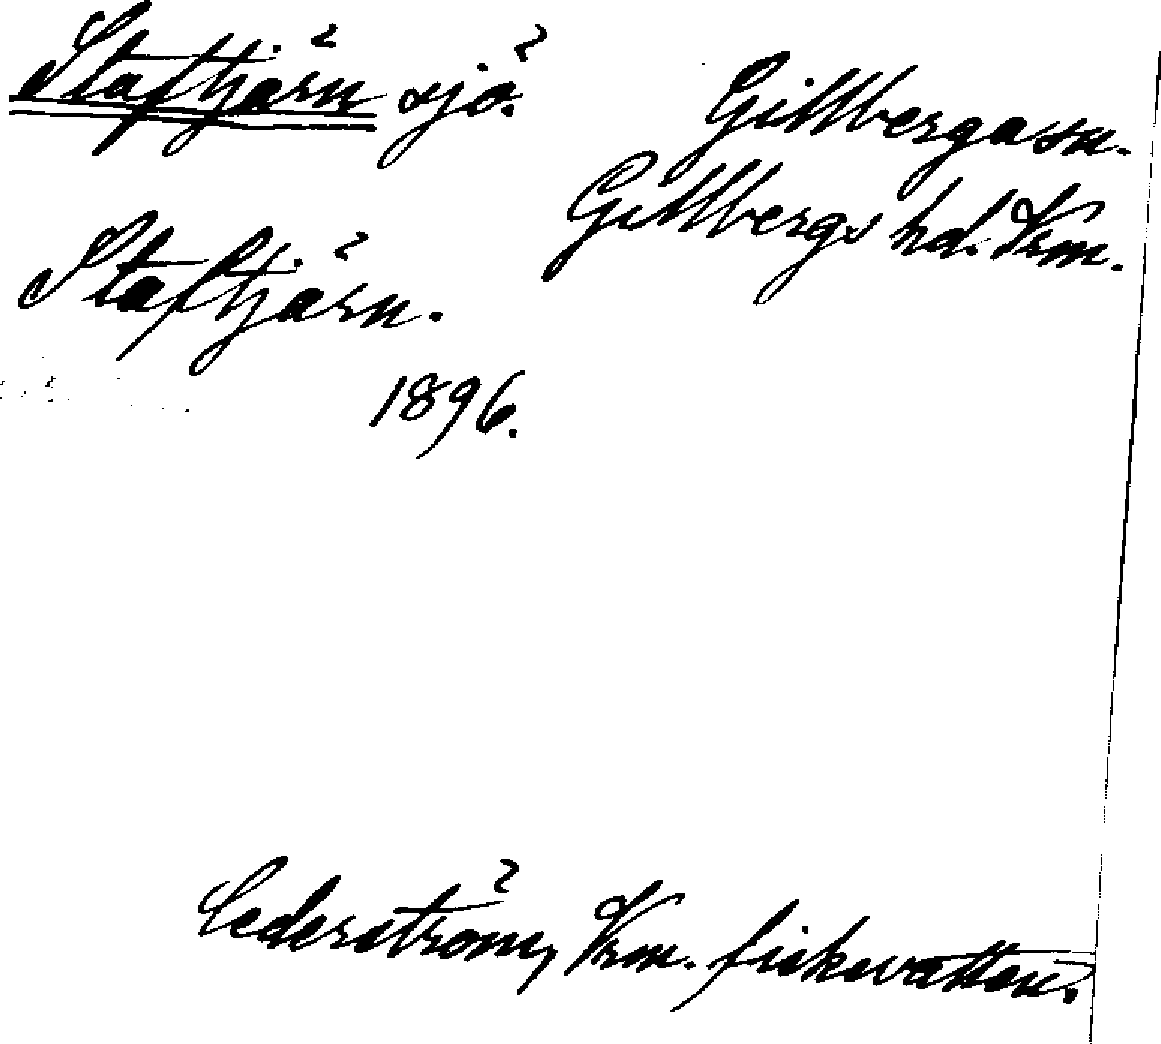 Staftjärn sjö.
Gillberga sn.
Gillbergs hd. Vrm.
Staftjärn.
1896.
Cederström, Vrm. fiskevatten.